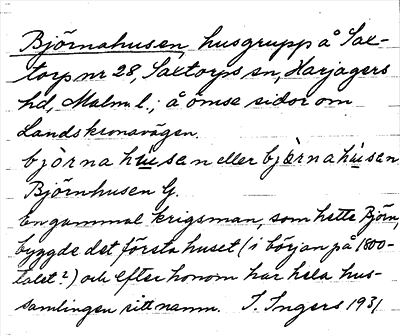 Björnahusen, husgrupp å Sax-
torp nr 28, Saxtorps sn, Harjagers
hd, Malm. l.; å ömse sidor om
Landskronavägen.
bjòrna hùsen eller bjòrnahùsen
Björnhusen G.
En gammal krigsman, som hette Björn,
byggde det första huset (i början på 1800-
talet?) och efter honom har hela hus-
samlingen sitt namn. I. Ingers 1931